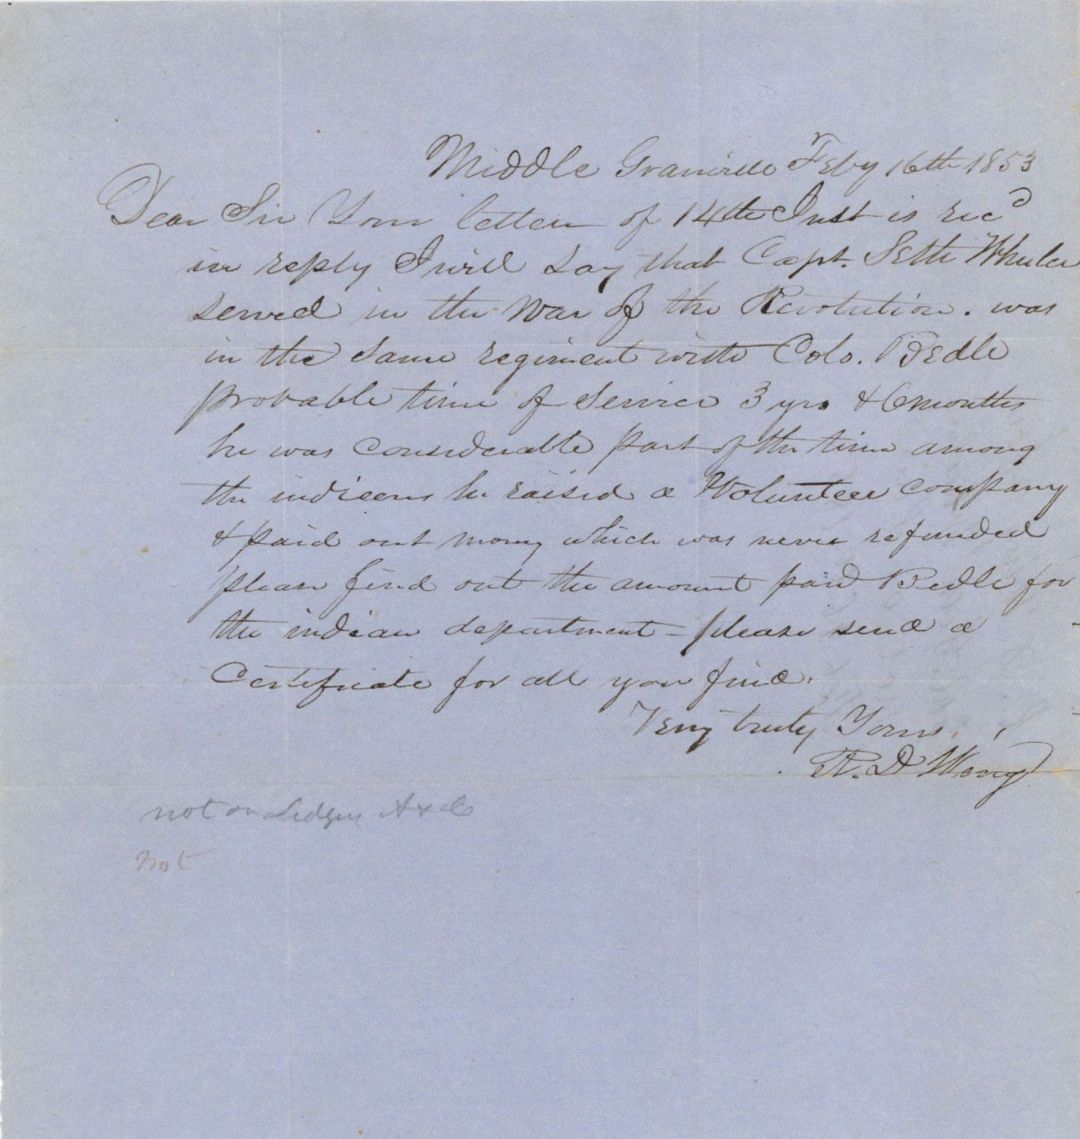 Middle Granville Feby 16th 1853
Dear Sir Your letter of 14th Inst is recd
in reply I will say that Capt. Seth Wheeler
served in the War of the Revolution. was
in the same regiment with Colo. Bedle
probable time of Service 3 yrs & 6 months
he was considerable part of the time among
the indieens he raised a Volunteer company
& paid out mony which was never refunded
please find out the amount paid Bedle for
the indian department - please send a
Certificate for all you find.
Very truly Yours
R. D Wing
not on Ledger A & C
Not